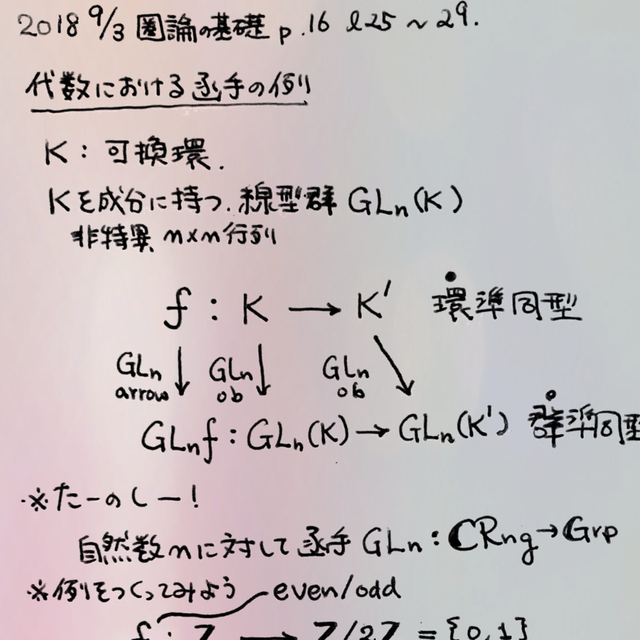 2018 9/3 圏論の基礎 p.16 l25 ~ 29.
代数における函手の例
K : 可換環.
Kを成分に持つ. 線型群 GLn(K)
非特異 n×n行列
f : K → K' 環準同型
GLn arrow ↓ GLn ob ↓ GLn ob ↘
GLnf : GLn(K) → GLn(K') 群準同型
※たーのしー!
自然数nに対して函手 GLn : CRng → Grp
※例をつくってみよう even/odd
f : Z → Z/2Z = {0,1}